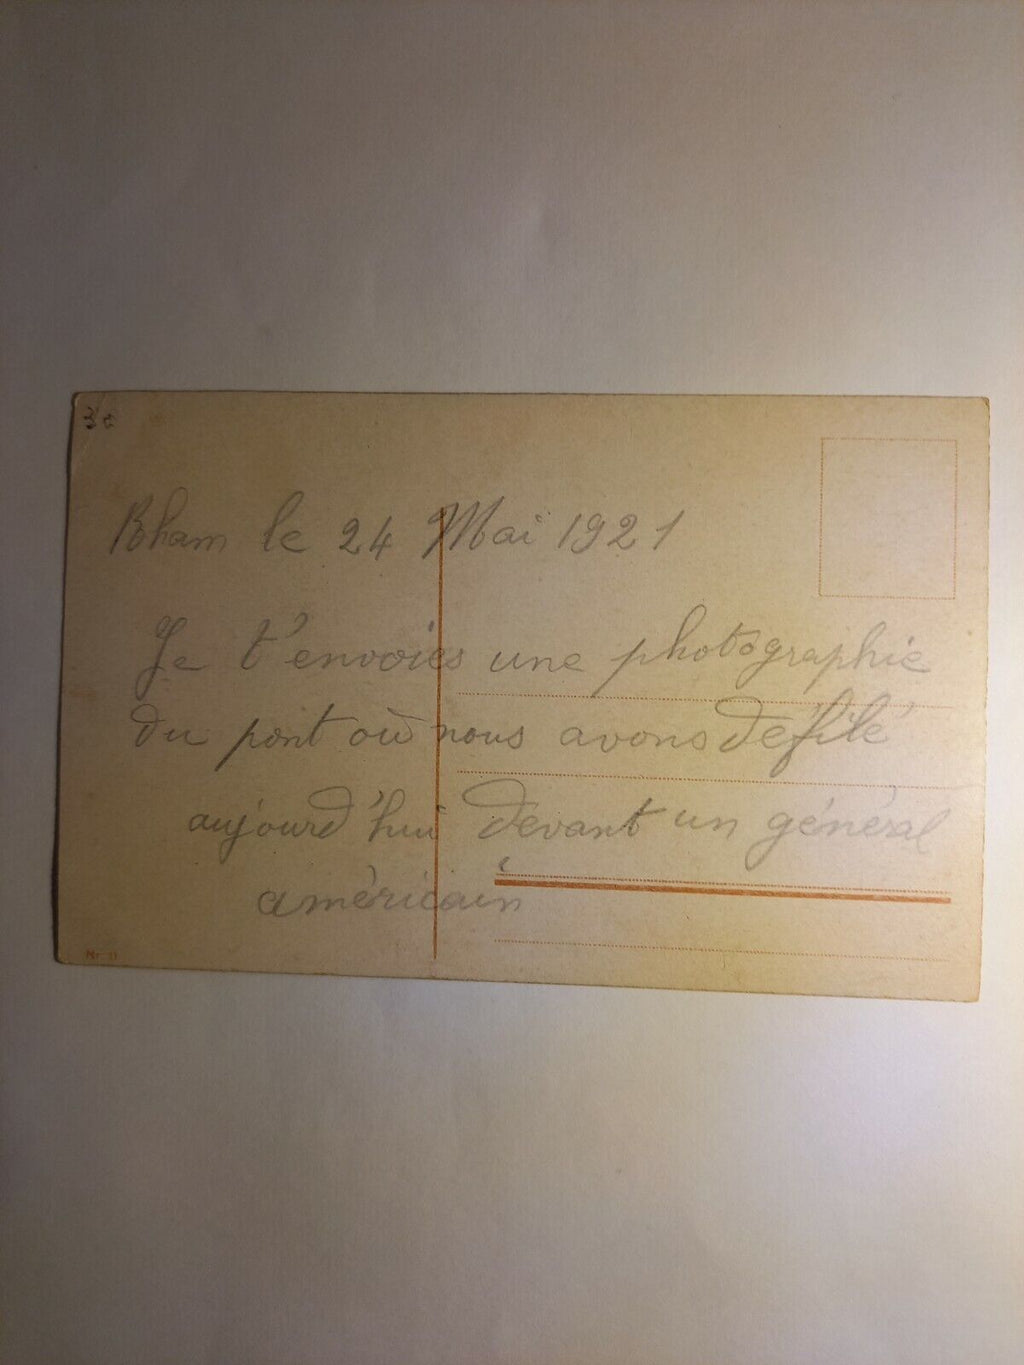 30
Rham le 24 Mai 1921
Je t'envoies une photographie
du pont où nous avons défilé
aujourd'hui devant un général
américain
Nr. 11